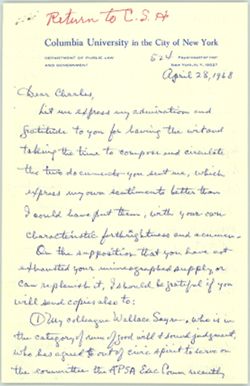 Return to C.S.A
Columbia University in the City of New York
DEPARTMENT OF PUBLIC LAW
AND GOVERNMENT
624
NEW YORK, N.Y. 10027
April 28, 1968
Dear Charles,
Let me express my admiration and
gratitude to you for having the wit and
taking the time to compose and circulate
the two documents you sent me, which
express my own sentiments better than
I could have put them, with your own
characteristic forthrightness and acumen.
On the supposition that you have not
exhausted your mimeographed supply, or
can replenish it, I should be grateful if you
will send copies also to:
① My colleague Wallace Sayre, who is in
the category of men of good will & sound judgment,
who has agreed out of civic spirit to serve on
the committee the APSA Exec Comm recently